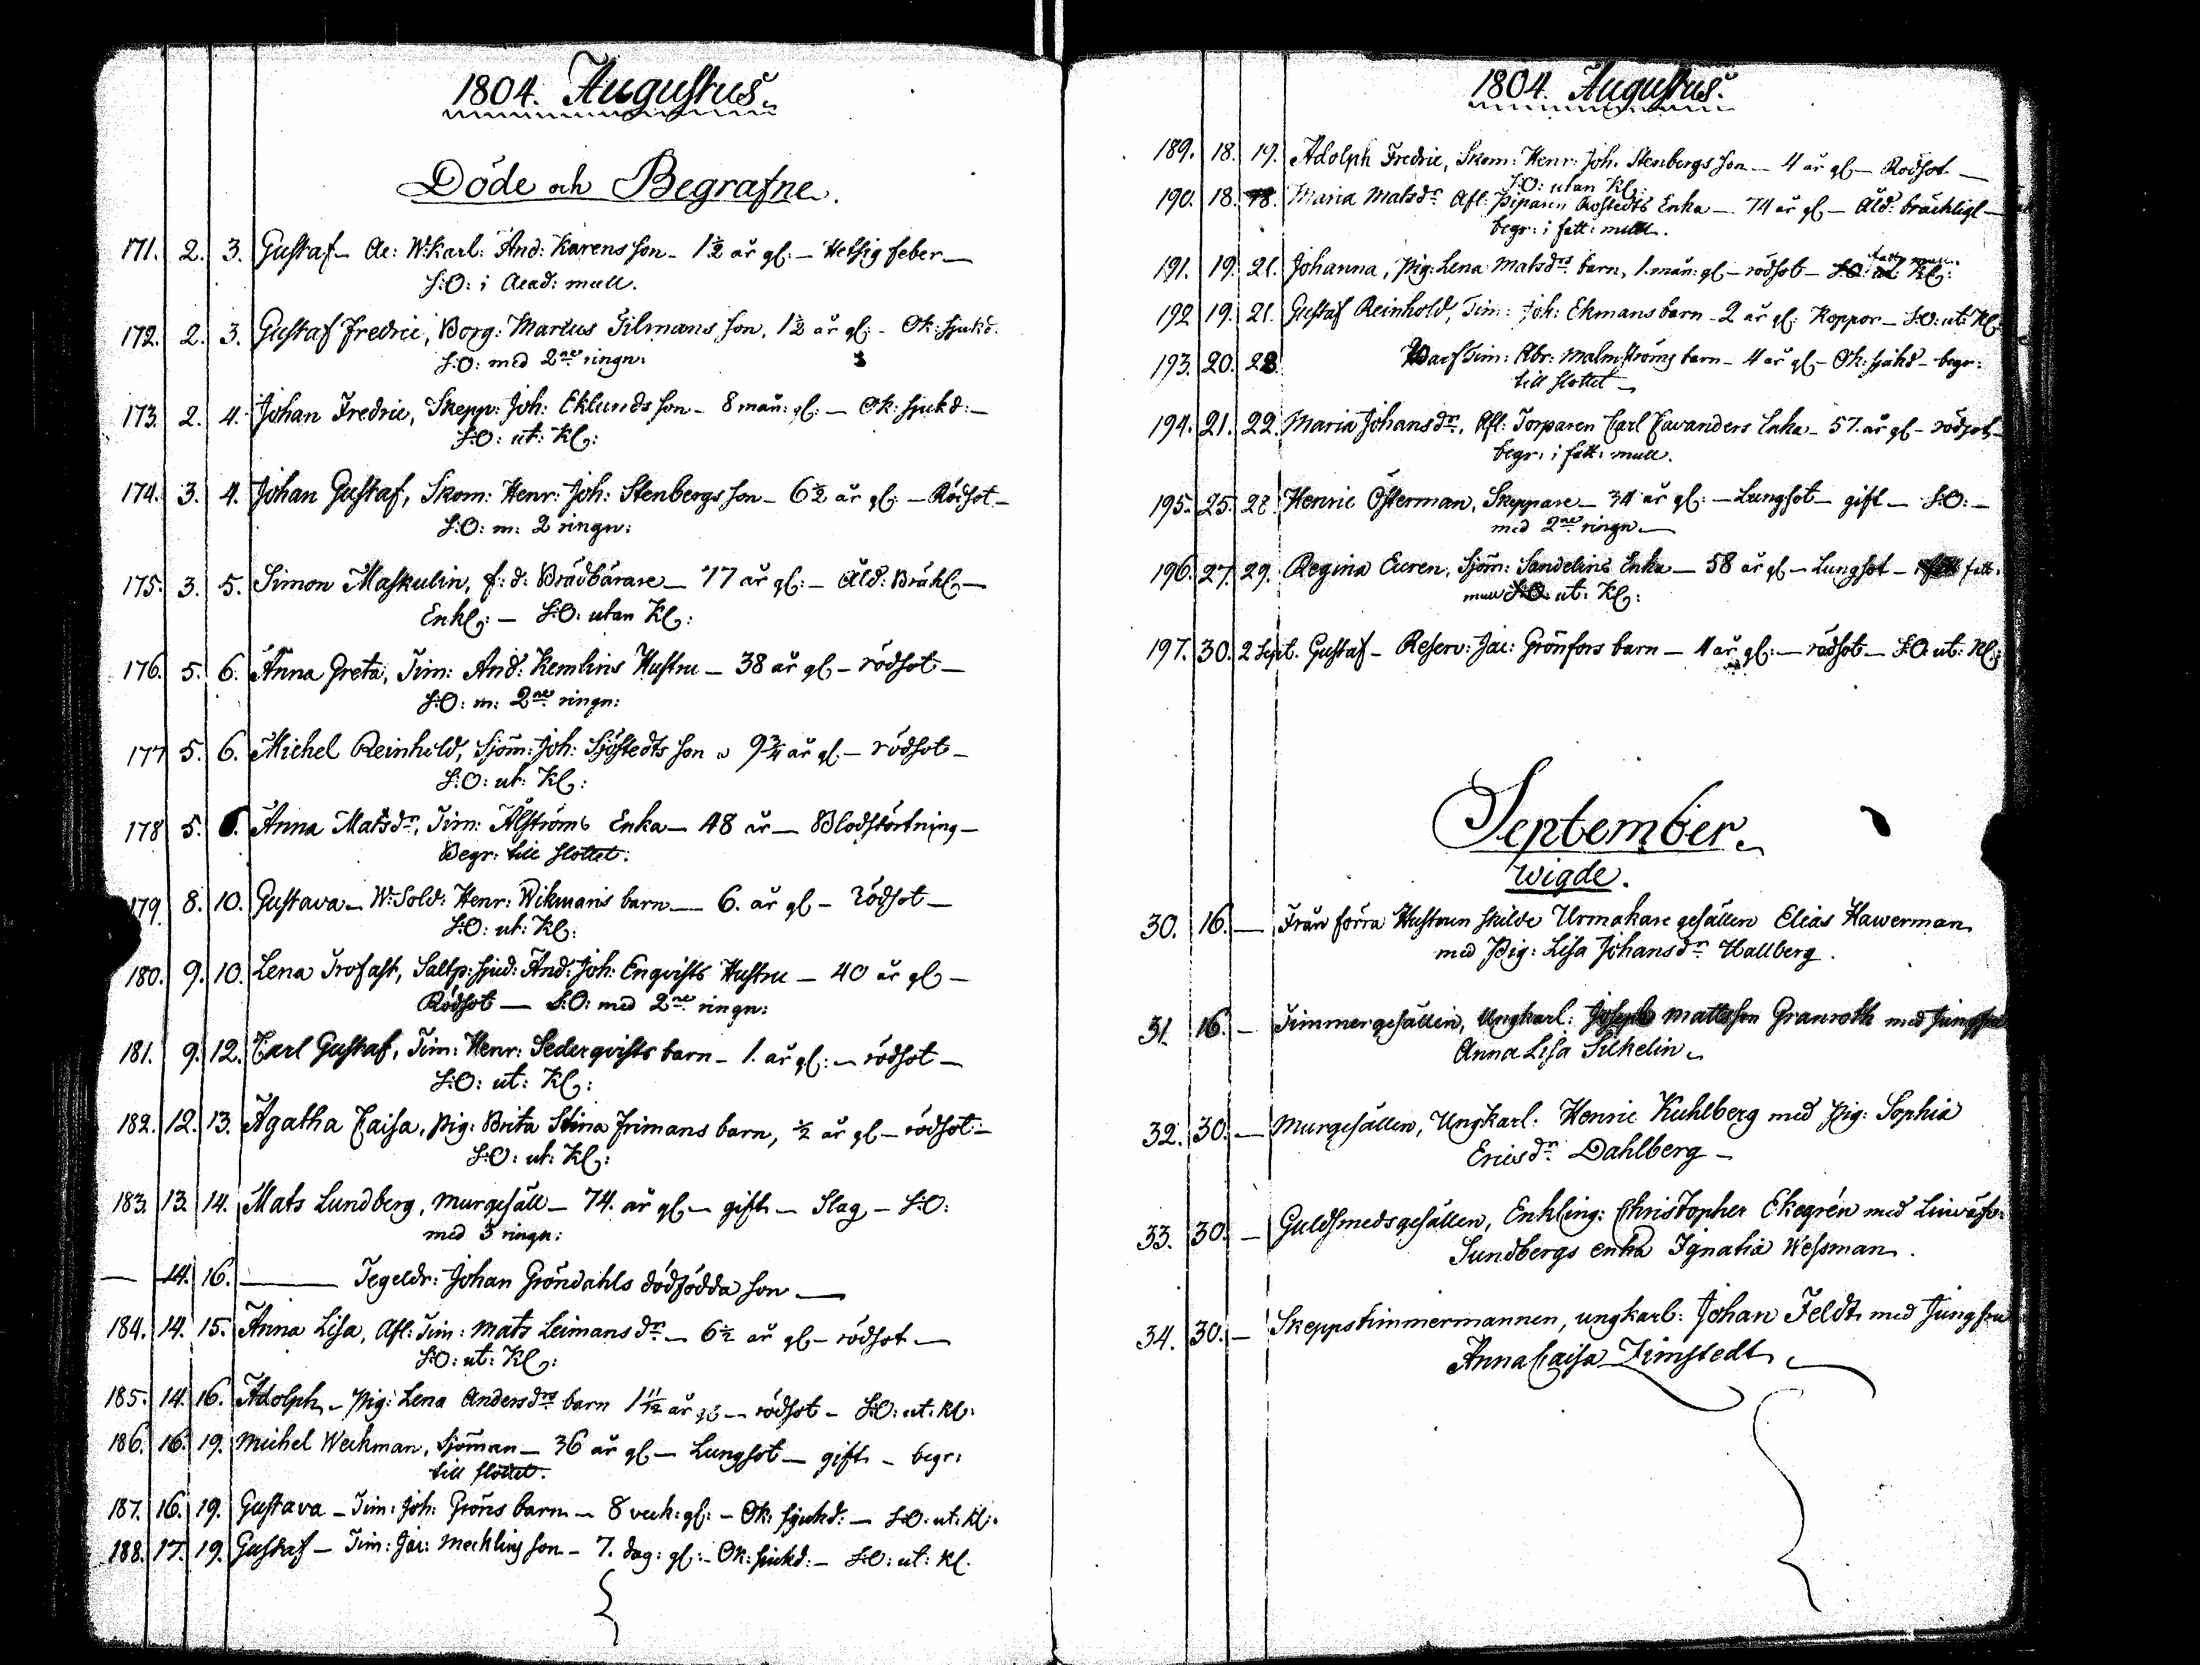 1804. Augustus.
Döde och Begrafne.
171. 2. 3. Gustaf – Ac: W:Karl: And: Karens son – 1½ år gl: – Hetsig feber –
S:O: i Acad: mull.
172. 2. 3. Gustaf Fredric, Borg: Marcus Tilmans son, 1½ år gl: – Ok: sjukd.
S:O: med 2ne ringn:
173. 2. 4. Johan Fredric, Skepp: Joh: Eklunds son – 8 mån: gl: – Ok: sjukd: –
S:O: ut: Kl:
174. 3. 4. Johan Gustaf, Skom: Henr: Joh: Stenbergs son – 6½ år gl: – Rödsot –
S:O: m: 2 ringn:
175. 3. 5. Simon Maskulin, f:d: Brädbärare – 77 år gl: – Åld: Bräkl –
Enkl: – S:O: utan Kl:
176. 5. 6. Anna Greta, Tim: And: Kemlins Hustru – 38 år gl – rödsot –
S:O: m: 2ne ringn:
177 5. 6. Michel Reinhold, Sjöm: Joh: Sjöstedts son 9¾ år gl – rödsot –
S:O: ut: Kl:
178 5. 6. Anna Matsdr, Tim: Ahlströms Enka – 48 år – Blodstörtning –
Begr: till slottet.
179. 8. 10. Gustava – W:Sold: Henr: Wikmans barn – 6. år gl – rödsot –
S:O: ut: Kl:
180. 9. 10. Lena Trofast, Saltp: sjud: And: Joh: Enqvists Hustru – 40 år gl –
Rödsot – S:O: med 2ne ringn:
181. 9. 12. Carl Gustaf, Tim: Henr: Sederqvists barn – 1. år gl: – rödsot –
S:O: ut: Kl:
182. 12. 13. Agatha Caisa, Pig: Brita Stina Frimans barn, ½ år gl – rödsot –
S:O: ut: Kl:
183. 13. 14. Mats Lundberg, Murgesäll – 74. år gl – gift – Slag – S:O:
med 3 ringn:
— 14. 16. — Tegeldr: Johan Gröndahls dödfödda son —
184. 14. 15. Anna Lisa, Afl: Tim: Mats Leimans dr – 6½ år gl – rödsot –
S:O: ut: Kl:
185. 14. 16. Adolph – Pig: Lena Andersdrs barn 1 11/12 år gl – rödsot – S:O: ut: Kl:
186. 16. 19. Michel Weckman, Sjöman – 36 år gl – Lungsot – gift – begr:
till slottet.
187. 16. 19. Gustava – Tim: Joh: Gröns barn – 8 veck: gl: – Ok: sjukd: – S:O: ut: Kl:
188. 17. 19. Gustaf – Tim: Jac: Mechlins son – 7. dag: gl: – Ok: sjukd: – S:O: ut: Kl.
1804. Augustus.
189. 18. 19. Adolph Fredric, Skom: Henr: Joh: Stenbergs son – 4 år gl – Rödsot –
S:O: utan Kl:
190. 18. 18. Maria Matsdr Afl: Piparen Rostedts Enka – 74 år gl – Åld: bräckligh –
begr: i fatt: mull.
191. 19. 21. Johanna, Pig: Lena Matsdrs barn, 1. mån: gl – rödsot – S:O: ut: Kl:
fatt: mull.
192 19. 21. Gustaf Reinhold, Tim: Joh: Ekmans barn – 2 år gl: Koppor – S:O: ut: Kl:
193. 20. 23. Warfs Tim: Abr: Malmströms barn – 4 år gl – Ok: sjukd – begr:
till slottet –
194. 21. 22. Maria Johansdr, Afl: Torparen Carl Cavanders Enka – 57. år gl – rödsot –
begr: i fatt: mull.
195. 25. 28. Henric Österman, Skeppare – 34 år gl: – Lungsot – gift – S:O: –
med 2ne ringn –
196. 27. 29. Regina Euren, Sjöm: Sandelins Enka – 58 år gl – Lungsot – fatt:
mull S:O: ut: Kl:
197. 30. 2 Sept. Gustaf – Reserv: Jac: Grönfors barn – 4 år gl: – rödsot – S:O: ut: Kl:
September.
Wigde.
30. 16. — Från förra Hustrun skilde Urmakare gesällen Elias Hawerman
med Pig: Lisa Johansdr Hallberg.
31. 16. — Timmergesällen, Ungkarl: Joseph Mattsson Granroth med Jungfru
Anna Lisa Silkelin
32. 30. — Murgesällen, Ungkarl: Henric Kuhlberg med Pig: Sophia
Ericsdr Dahlberg –
33. 30. — Guldsmedsgesällen, Enkling: Christopher Ekegrén med
Sundbergs enka Ignatia Wessman.
34. 30. — Skeppstimmermannen, ungkarl: Johan Feldt med Jungfru
Anna Caisa Zimstedt